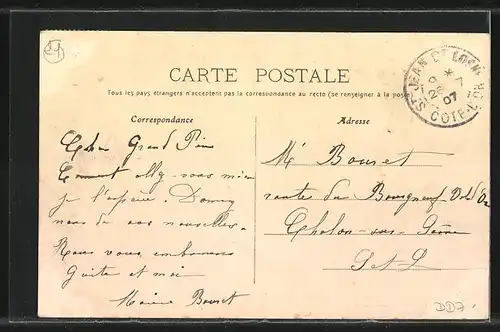 29
CARTE POSTALE
Tous les pays étrangers n'acceptent pas la correspondance au recto (Se renseigner à la poste
ST JEAN DE LOSNE
9 * 7
26
07
COTE-D'OR
Correspondance
Cher Grand Père
Comment allez-vous mieux
je l'espère. Donnez
nous de vos nouvelles.
Nous vous embrassons
Guite et moi
Marie Bouret
Adresse
Mr Bouret
route de Bourgneuf Val d'Or
Chalon-sur-Saône
S et L
DD7.